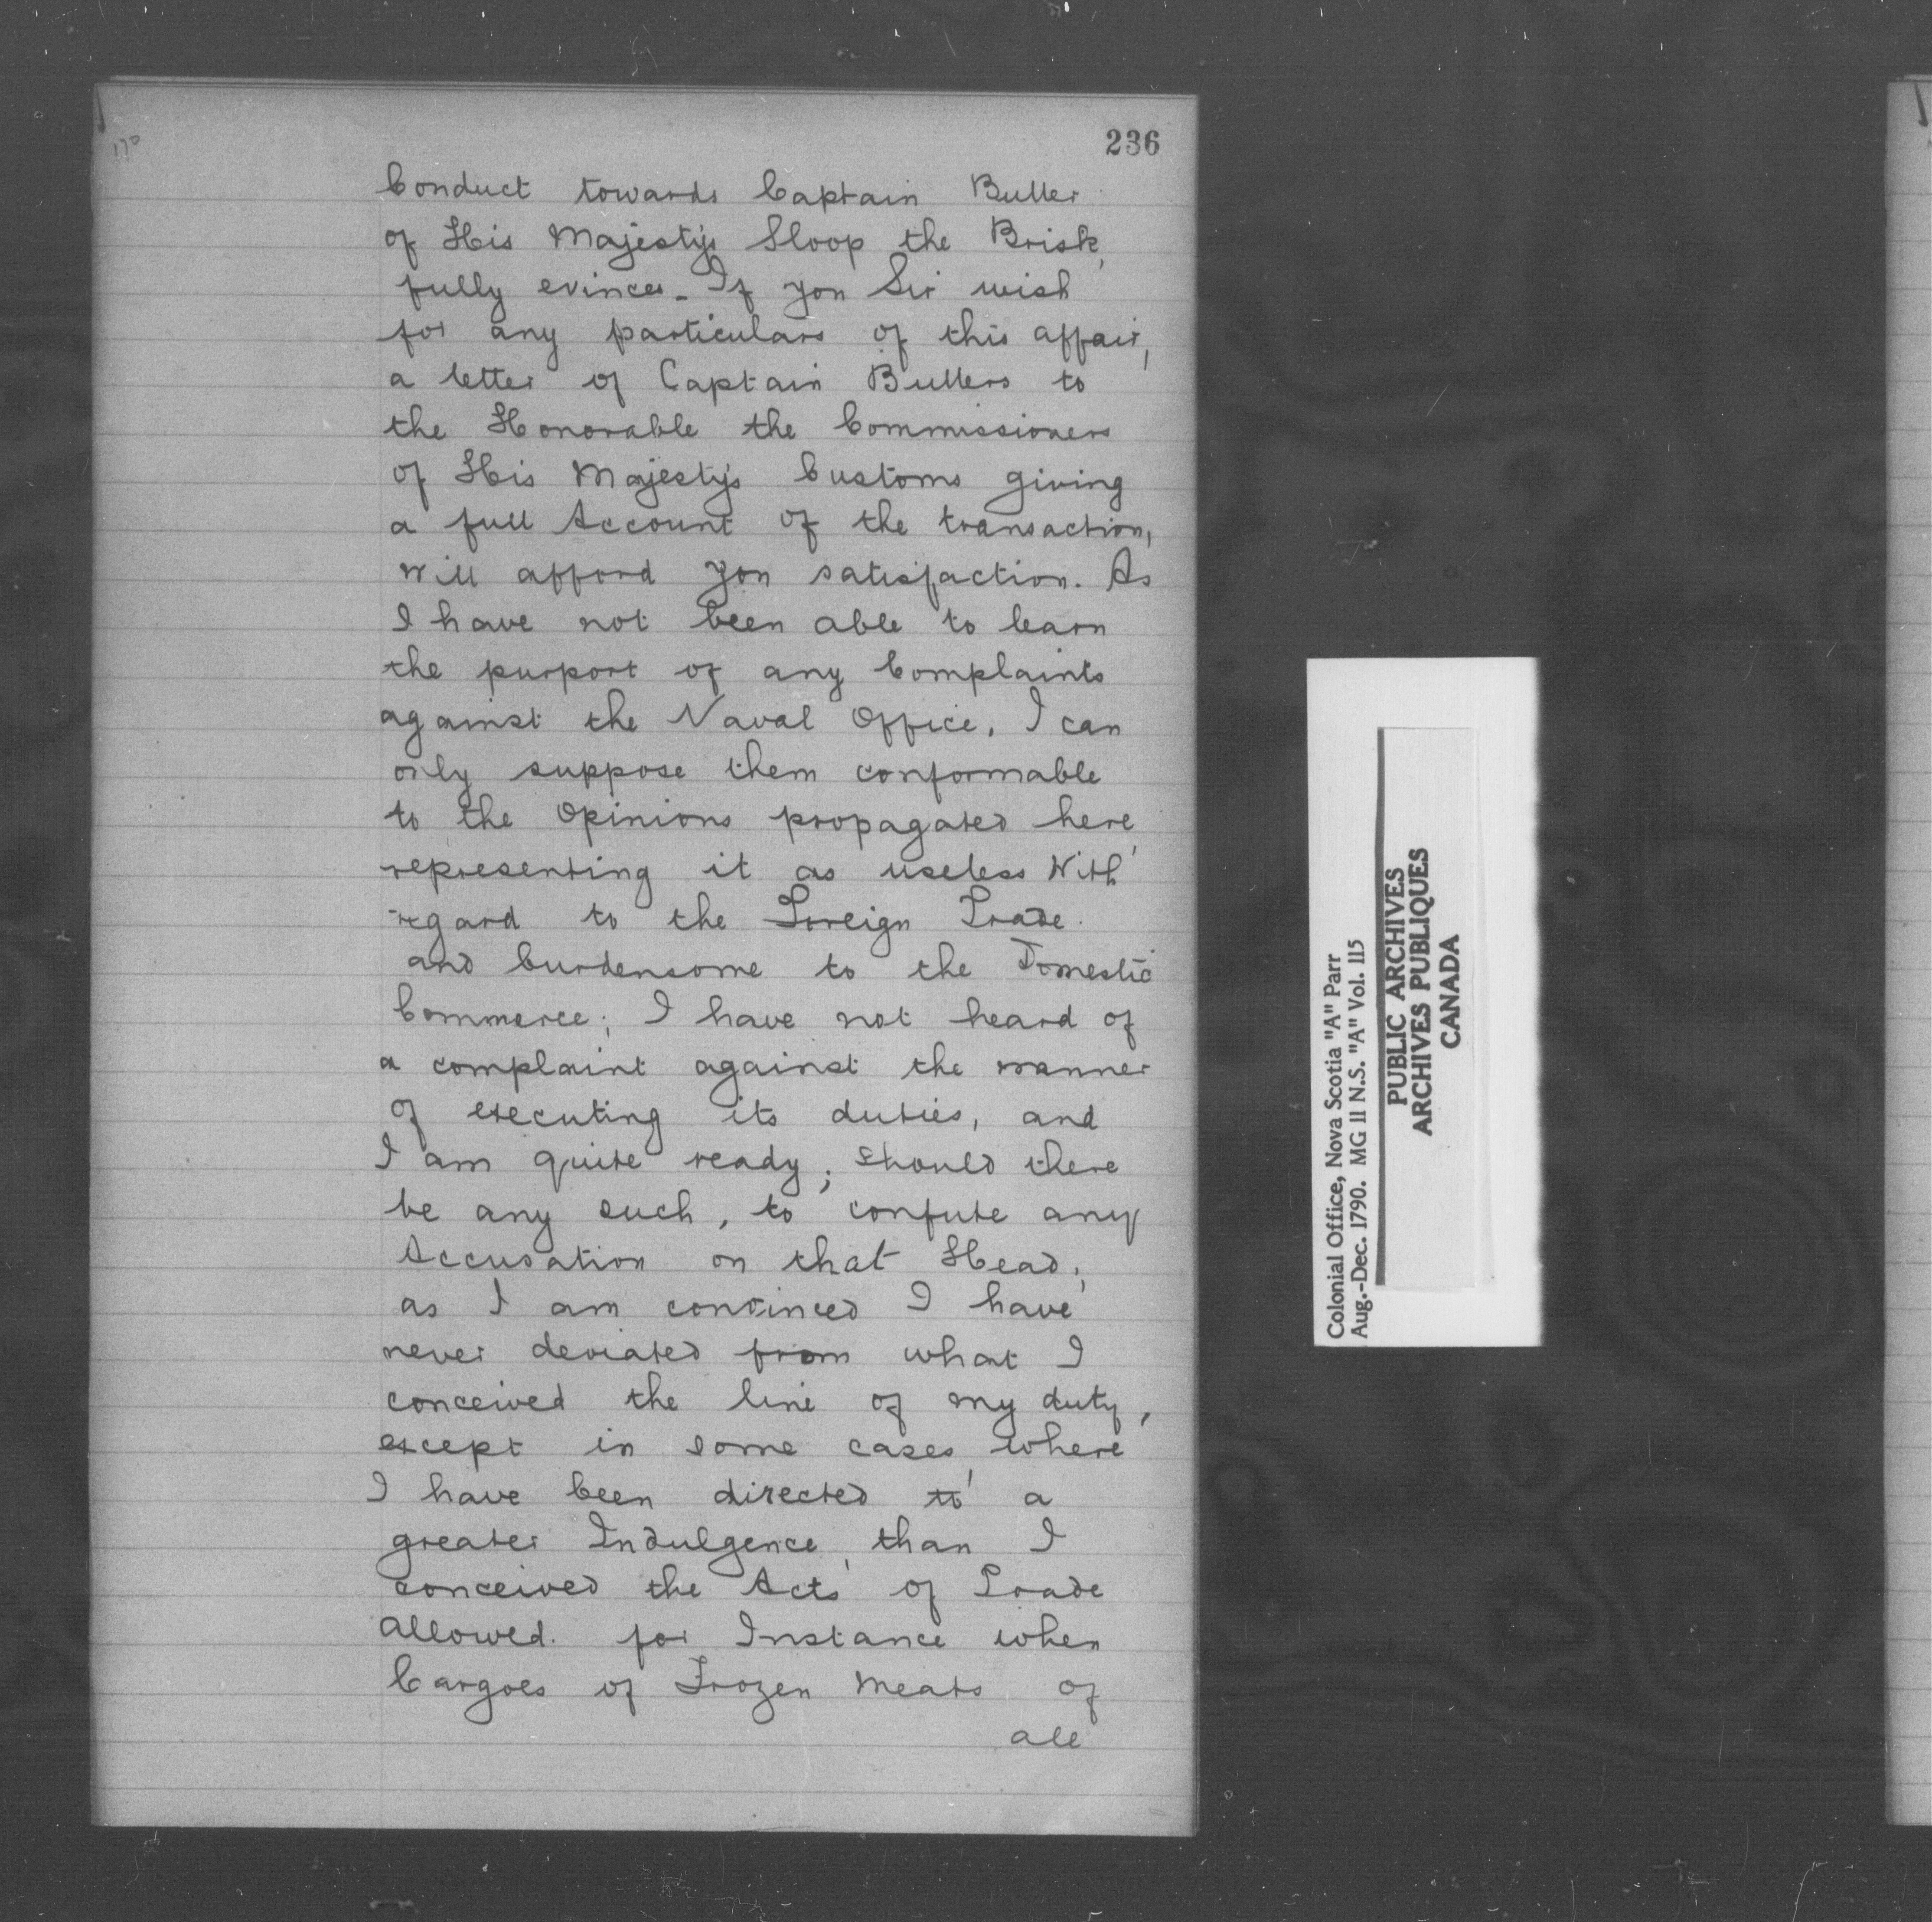 236
170
Conduct towards Captain Buller
of His Majesty's Sloop the Brisk,
fully evinces - If you Sir wish
for any particulars of this affair,
a letter of Captain Bullers to
the Honorable the Commissioners
of His Majesty's Customs giving
a full Account of the transaction,
will afford you satisfaction. As
I have not been able to learn
the purport of any Complaints
against the Naval Office, I can
only suppose them conformable
to the Opinions propagated here,
representing it as useless with
regard to the Foreign Trade
and burdensome to the Domestic
Commerce; I have not heard of
a complaint against the manner
of executing its duties, and
I am quite ready; should there
be any such, to confute any
Accusation on that Head,
as I am convinced I have
never deviated from what I
conceived the line of my duty,
except in some cases, where
I have been directed to a
greater Indulgence, than I
conceived the Acts of Trade
allowed. for Instance when
Cargoes of Frozen Meats of
all
Colonial Office, Nova Scotia "A" Parr
Aug.-Dec. 1790. MG 11 N.S. "A" Vol. 115
PUBLIC ARCHIVES
ARCHIVES PUBLIQUES
CANADA